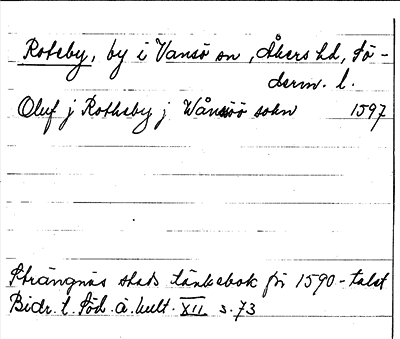 Rotsby, by i Vansö sn, Åkers hd, Sö-
derm. l.
Oluf j Rothsby j Wånsöö sokn 1597
Strängnäs stads tänkebok för 1590-talet
Bidr. t. Söd. ä. kult. XII s. 73